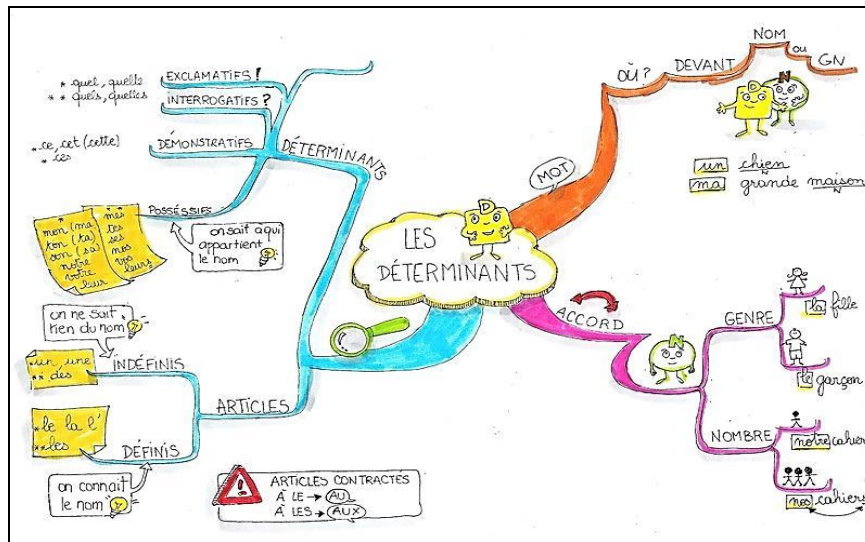 LES
DÉTERMINANTS
MOT
OÙ?
DEVANT
NOM
ou
GN
un chien
ma grande maison
ACCORD
GENRE
la fille
le garçon
NOMBRE
notre cahier
nos cahiers
DÉTERMINANTS
EXCLAMATIFS!
INTERROGATIFS?
* quel, quelle
** quels, quelles
DÉMONSTRATIFS
* ce, cet (cette)
* ces
POSSÉSSIFS
on sait à qui
appartient
le nom
mon (ma
ton (ta)
son (sa)
notre
votre
leur
* mes
tes
ses
nos
vos
leurs
ARTICLES
INDÉFINIS
on ne sait
rien du nom
* un, une
** des
DÉFINIS
* le la l'
** les
on connaît
le nom
ARTICLES CONTRACTÉS
À LE → AU
À LES → AUX